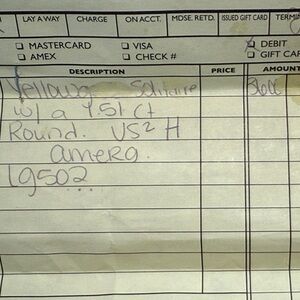 LAY A WAY CHARGE ON ACCT. MDSE. RETD. ISSUED GIFT CARD TERM
MASTERCARD VISA DEBIT
AMEX CHECK # GIFT CAR
DESCRIPTION PRICE AMOUNT
Yellow Solitaire
w/ a 1.51 ct
Round. VS2 H
amera.
19502